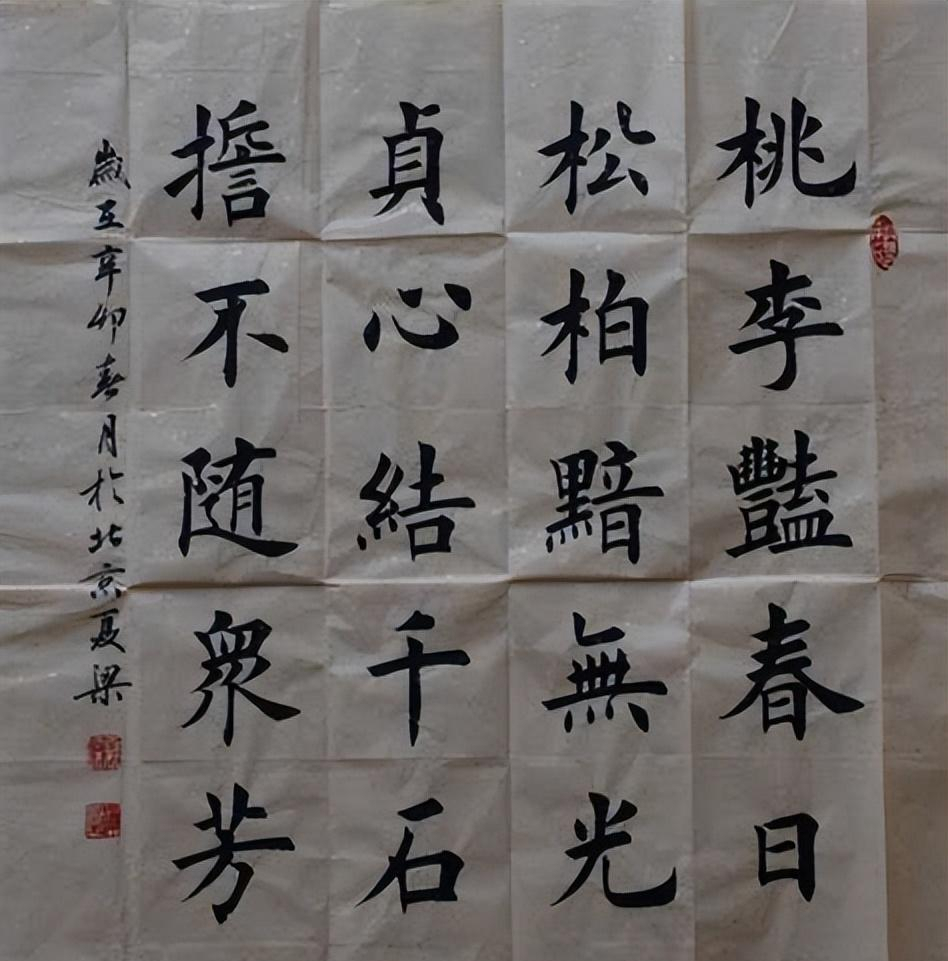 桃李豔春日
松柏黯無光
貞心結千石
擔不随衆芳
歲在辛卯春月於北京夏梁